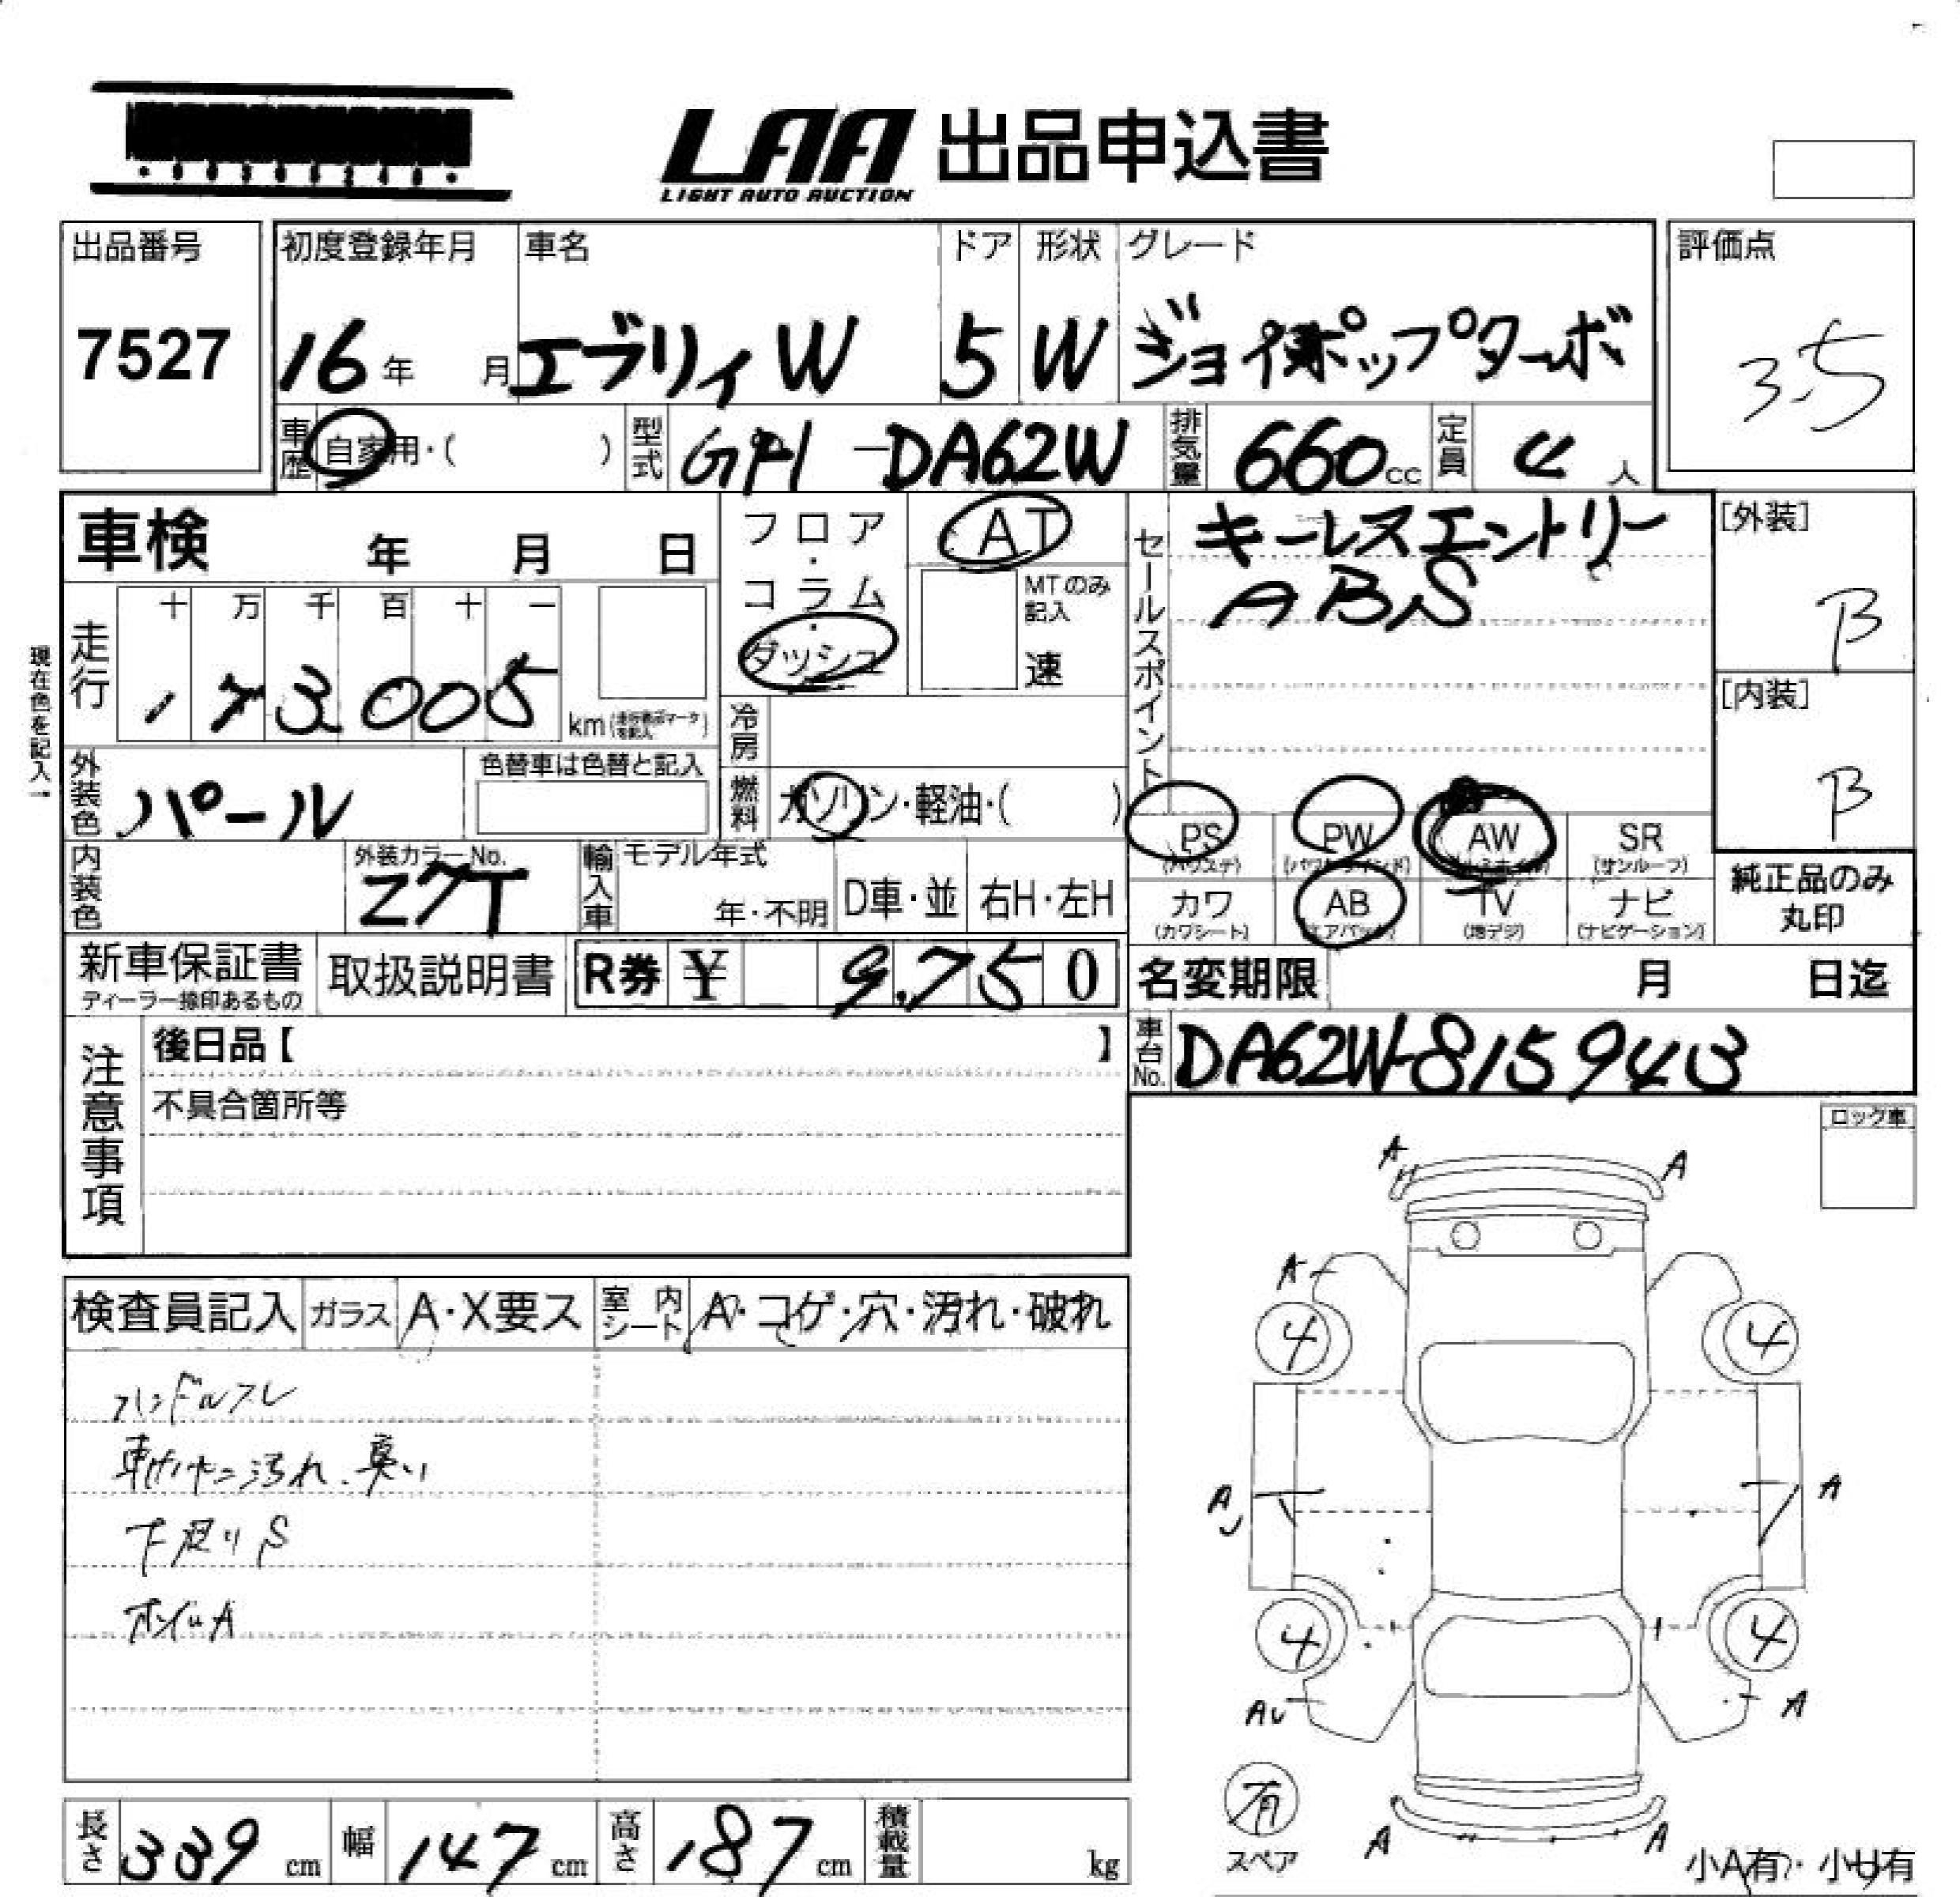 LAA 出品申込書
LIGHT AUTO AUCTION
出品番号
7527
初度登録年月
16年 月
車名
エブリィW
ドア
5
形状
W
グレード
ジョイポップターボ
評価点
3.5
車歴 自家用・( )
型式 -DA62W
排気量 660cc
定員 4人
車検 年 月 日
フロア・コラム・ダッシュ
AT
MTのみ記入
速
セールスポイント
キーレスエントリー
ABS
[外装]
B
[内装]
B
現在色を記入→
走行
十 万 千 百 十 一
173005 km
冷房
外装色 パール
色替車は色替と記入
燃料 ガソリン・軽油・( )
PS (パワステ)
PW (パワーウインド)
AW (アルミホイル)
SR (サンルーフ)
内装色
外装カラーNo.
Z7T
輸入車
モデル年式
年・不明
D車・並
右H・左H
カワ (カワシート)
AB (エアバック)
TV (地デジ)
ナビ (ナビゲーション)
純正品のみ丸印
新車保証書
ディーラー捺印あるもの
取扱説明書
R券 ¥ 9,750
名変期限 月 日迄
車台No. DA62W-815943
注意事項
後日品【 】
不具合箇所等
ロック車
検査員記入
ガラス A・X要ス
室内シート A・コゲ・穴・汚れ・破れ
ハンドルスレ
汚れ、臭い
下廻りS
ホイルA
A A
A
4 4
A A
4 4
AU A
A A
有
スペア
小A有・小U有
長さ 339cm
幅 147cm
高さ 187cm
積載量 kg